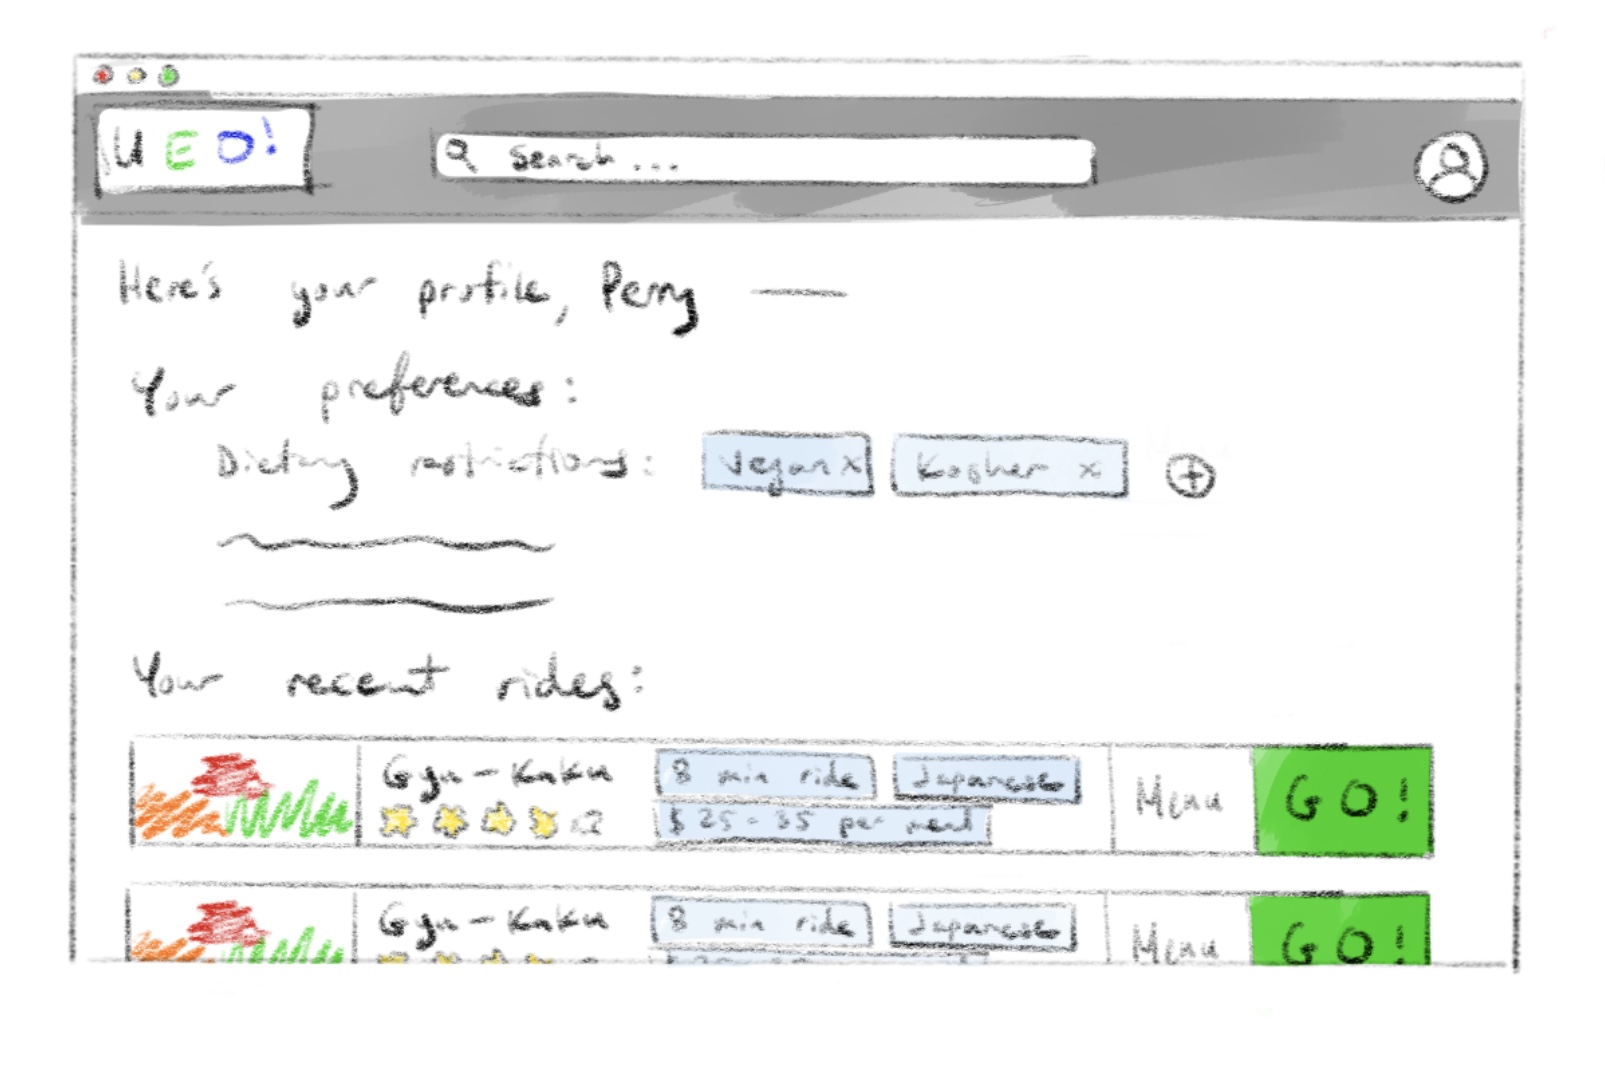 UEO!
Search...
Here's your profile, Perry
Your preferences:
Dietary restrictions: Vegan x Kosher x
Your recent rides:
Gyu-Kaku 8 min ride Japanese Menu GO!
$25-35 per meal
Gyu-Kaku 8 min ride Japanese Menu GO!